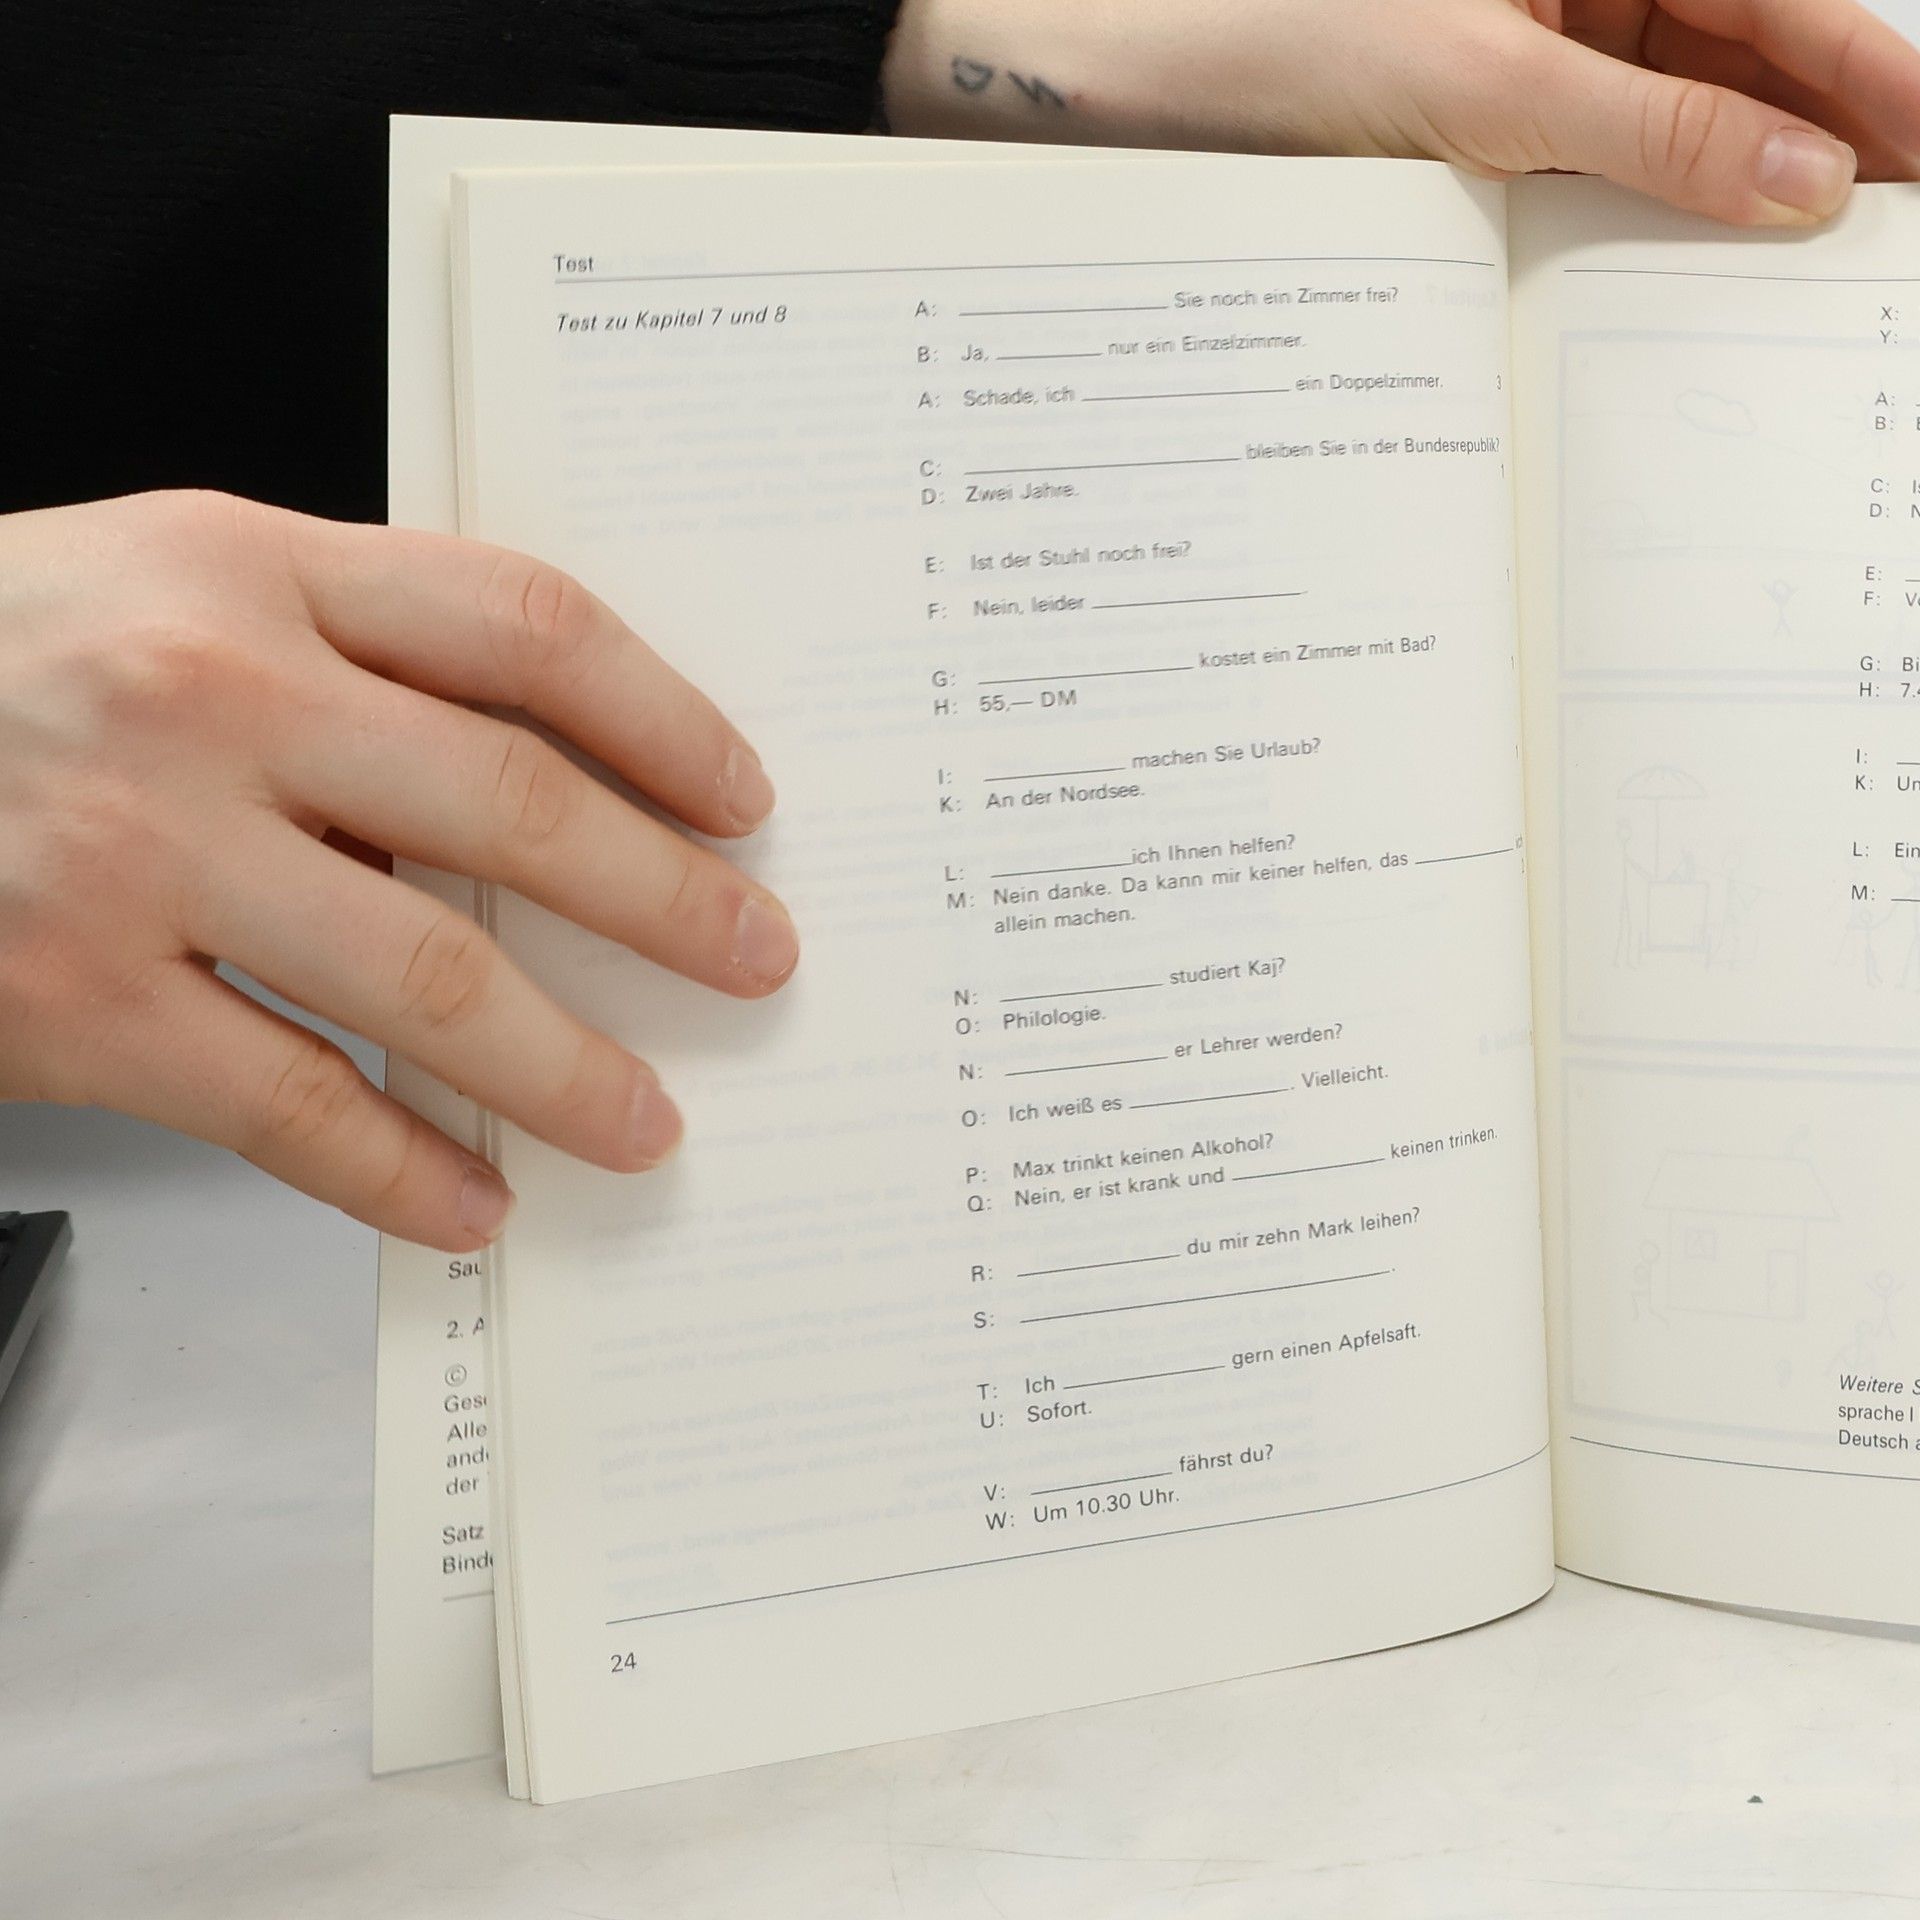 Test
Test zu Kapitel 7 und 8
A: ____ Sie noch ein Zimmer frei?
B: Ja, ____ nur ein Einzelzimmer.
A: Schade, ich ____ ein Doppelzimmer. 3
C: ____ bleiben Sie in der Bundesrepublik?
D: Zwei Jahre. 1
E: Ist der Stuhl noch frei?
F: Nein, leider ____. 1
G: ____ kostet ein Zimmer mit Bad?
H: 55,— DM 1
I: ____ machen Sie Urlaub?
K: An der Nordsee. 1
L: ____ ich Ihnen helfen?
M: Nein danke. Da kann mir keiner helfen, das ____ ich
allein machen.
N: ____ studiert Kaj?
O: Philologie.
N: ____ er Lehrer werden?
O: Ich weiß es ____. Vielleicht.
P: Max trinkt keinen Alkohol?
Q: Nein, er ist krank und ____ keinen trinken.
R: ____ du mir zehn Mark leihen?
S: ____.
T: Ich ____ gern einen Apfelsaft.
U: Sofort.
V: ____ fährst du?
W: Um 10.30 Uhr.
24
2. A
©
Alle
der
Satz
X:
Y:
A:
B:
C:
D:
E:
F:
G: Bi
H: 7.
I:
K: Un
L: Ein
M:
Weitere S
sprache I
Deutsch a